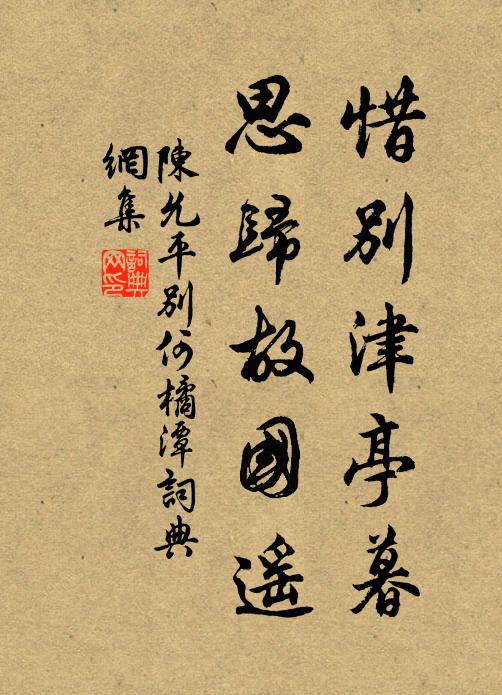 惜別津亭暮
思歸故國遥
陳允平別何橘潭詞典
網集
詞典網印